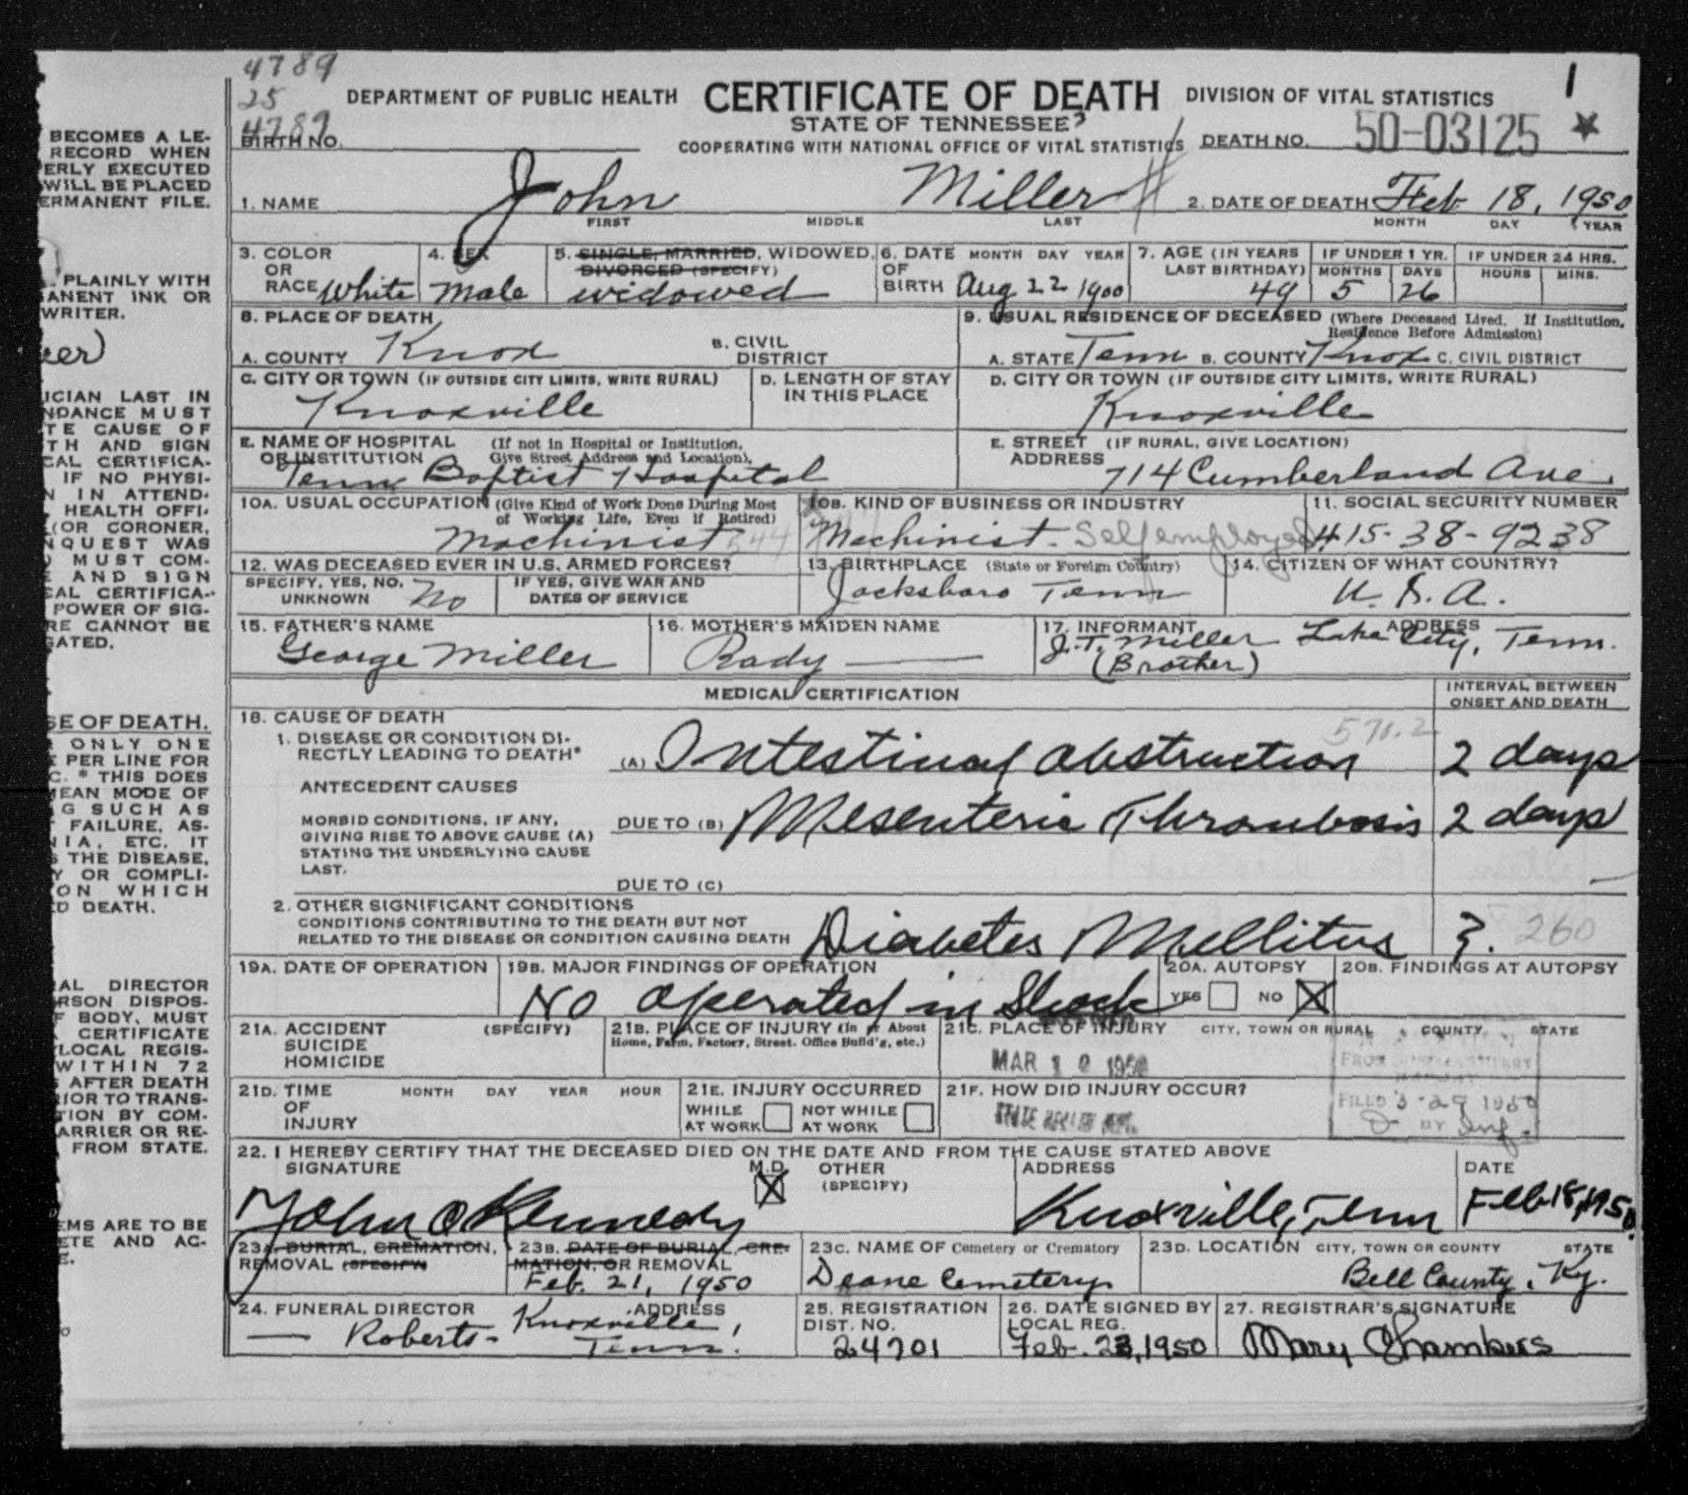 4789
25
4789
1
DEPARTMENT OF PUBLIC HEALTH CERTIFICATE OF DEATH DIVISION OF VITAL STATISTICS
STATE OF TENNESSEE
BIRTH NO. COOPERATING WITH NATIONAL OFFICE OF VITAL STATISTICS DEATH NO. 50-03125
1. NAME John Miller 2. DATE OF DEATH Feb 18, 1950
FIRST MIDDLE LAST MONTH DAY YEAR
3. COLOR OR RACE White
4. SEX Male
5. SINGLE, MARRIED, WIDOWED, DIVORCED (SPECIFY) widowed
6. DATE OF BIRTH MONTH DAY YEAR Aug 22 1900
7. AGE (IN YEARS LAST BIRTHDAY) 49
IF UNDER 1 YR. MONTHS 5 DAYS 26
IF UNDER 24 HRS. HOURS MINS.
8. PLACE OF DEATH
A. COUNTY Knox
B. CIVIL DISTRICT
9. USUAL RESIDENCE OF DECEASED (Where Deceased Lived. If Institution, Residence Before Admission)
A. STATE Tenn B. COUNTY Knox C. CIVIL DISTRICT
C. CITY OR TOWN (IF OUTSIDE CITY LIMITS, WRITE RURAL) Knoxville
D. LENGTH OF STAY IN THIS PLACE
D. CITY OR TOWN (IF OUTSIDE CITY LIMITS, WRITE RURAL) Knoxville
E. NAME OF HOSPITAL OR INSTITUTION (If not in Hospital or Institution, Give Street Address and Location). Tenn Baptist Hospital
E. STREET ADDRESS (IF RURAL, GIVE LOCATION) 714 Cumberland Ave.
10A. USUAL OCCUPATION (Give Kind of Work Done During Most of Working Life, Even if Retired) Machinist 544
10B. KIND OF BUSINESS OR INDUSTRY Machinist - Self employed
11. SOCIAL SECURITY NUMBER 415-38-9238
12. WAS DECEASED EVER IN U.S. ARMED FORCES?
SPECIFY, YES, NO, UNKNOWN No
IF YES, GIVE WAR AND DATES OF SERVICE
13. BIRTHPLACE (State or Foreign Country) Jacksboro Tenn
14. CITIZEN OF WHAT COUNTRY? U.S.A.
15. FATHER'S NAME George Miller
16. MOTHER'S MAIDEN NAME Rady
17. INFORMANT ADDRESS
J.T. Miller Lake City, Tenn.
(Brother)
MEDICAL CERTIFICATION
INTERVAL BETWEEN ONSET AND DEATH
18. CAUSE OF DEATH
1. DISEASE OR CONDITION DIRECTLY LEADING TO DEATH* (A) Intestinal obstruction 571.2 2 days
ANTECEDENT CAUSES
MORBID CONDITIONS, IF ANY, GIVING RISE TO ABOVE CAUSE (A) STATING THE UNDERLYING CAUSE LAST.
DUE TO (B) Mesenteric Thrombosis 2 days
DUE TO (C)
2. OTHER SIGNIFICANT CONDITIONS
CONDITIONS CONTRIBUTING TO THE DEATH BUT NOT RELATED TO THE DISEASE OR CONDITION CAUSING DEATH Diabetes Mellitus ?. 260
19A. DATE OF OPERATION
19B. MAJOR FINDINGS OF OPERATION
No operated in Shock
20A. AUTOPSY YES NO X
20B. FINDINGS AT AUTOPSY
21A. ACCIDENT SUICIDE HOMICIDE (SPECIFY)
21B. PLACE OF INJURY (In or About Home, Farm, Factory, Street. Office Build'g, etc.)
21C. PLACE OF INJURY CITY, TOWN OR RURAL COUNTY STATE
MAR 1 0 1950
21D. TIME OF INJURY MONTH DAY YEAR HOUR
21E. INJURY OCCURRED WHILE AT WORK NOT WHILE AT WORK
21F. HOW DID INJURY OCCUR?
FILED 3-29 1950
BY
22. I HEREBY CERTIFY THAT THE DECEASED DIED ON THE DATE AND FROM THE CAUSE STATED ABOVE
SIGNATURE M.D. X OTHER (SPECIFY) ADDRESS DATE
John O Kennedy Knoxville, Tenn Feb 18, 1950.
23A. BURIAL, CREMATION, REMOVAL (SPECIFY)
23B. DATE OF BURIAL, CREMATION, OR REMOVAL Feb. 21, 1950
23C. NAME OF Cemetery or Crematory Deane Cemetery
23D. LOCATION CITY, TOWN OR COUNTY STATE Bell County, Ky.
24. FUNERAL DIRECTOR ADDRESS
Roberts - Knoxville, Tenn.
25. REGISTRATION DIST. NO. 24701
26. DATE SIGNED BY LOCAL REG. Feb. 23, 1950
27. REGISTRAR'S SIGNATURE Mary Chambers
BECOMES A LE-
RECORD WHEN
ERLY EXECUTED
WILL BE PLACED
ERMANENT FILE.
PLAINLY WITH
ANENT INK OR
WRITER.
ICIAN LAST IN
NDANCE MUST
TE CAUSE OF
TH AND SIGN
CAL CERTIFICA-
IF NO PHYSI-
N IN ATTEND-
HEALTH OFFI-
(OR CORONER,
NQUEST WAS
MUST COM-
E AND SIGN
CAL CERTIFICA-
POWER OF SIG-
RE CANNOT BE
GATED.
SE OF DEATH.
ONLY ONE
E PER LINE FOR
C. * THIS DOES
MEAN MODE OF
G SUCH AS
FAILURE, AS-
NIA, ETC. IT
S THE DISEASE,
Y OR COMPLI-
ON WHICH
ED DEATH.
AL DIRECTOR
RSON DISPOS-
F BODY, MUST
CERTIFICATE
LOCAL REGIS-
WITHIN 72
AFTER DEATH
IOR TO TRANS-
TION BY COM-
ARRIER OR RE-
FROM STATE.
EMS ARE TO BE
ETE AND AC-
E.